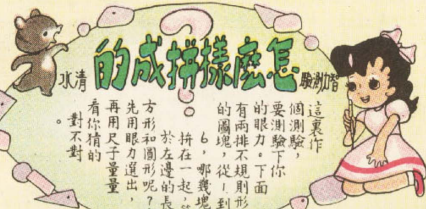 智力測驗
怎麼樣拼成的
清水
這裏作
個測驗,
要測驗下你
的眼力。下面
有兩排不規則形
的圖塊,從1到
6,哪幾塊
拼在一起,等
於左邊的長
方形和圓形呢?
先用眼力選出,
再用尺子量量
看你猜的
對不對。